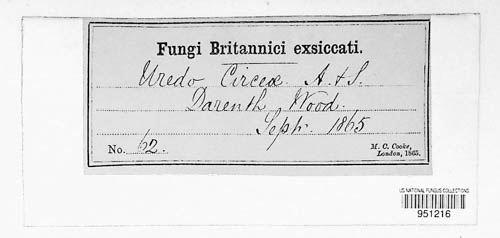 Fungi Britannici exsiccati.
Uredo Circeæ A. & S.
Darenth Wood.
Septr. 1865
No. 62.
M. C. Cooke,
London, 1865.
US NATIONAL FUNGUS COLLECTIONS
951216